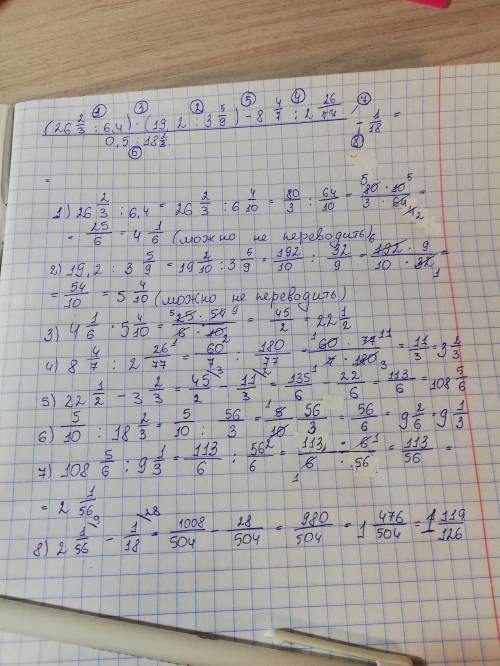 ① ③ ② ⑤ ④ ⑦
(26 2/3 : 6,4) · (19,2 : 3 5/9) - 8 4/7 : 2 26/77
- 1/18 =
0,5 : 18 2/3
⑥ ⑧
=
1) 26 2/3 : 6,4 = 26 2/3 : 6 4/10 = 80/3 : 64/10 = 80 · 10/3 · 64 =
= 25/6 = 4 1/6 (можно не переводить)
2) 19,2 : 3 5/9 = 19 2/10 : 3 5/9 = 192/10 : 32/9 = 192 · 9/10 · 32 =
= 54/10 = 5 4/10 (можно не переводить)
3) 4 1/6 · 5 4/10 = 25 · 54/6 · 10 = 45/2 = 22 1/2
4) 8 4/7 : 2 26/77 = 60/7 : 180/77 = 60 · 77/7 · 180 = 11/3 = 3 2/3
5) 22 1/2 - 3 2/3 = 45/2 - 11/3 = 135/6 - 22/6 = 113/6 = 108 5/6
6) 5/10 : 18 2/3 = 5/10 : 56/3 = 5 56/10 3 = 56/6 = 9 2/6 = 9 1/3
7) 108 5/6 : 9 1/3 = 113/6 : 56/6 = 113 · 6/6 · 56 = 113/56 =
= 2 1/56
8) 2 1/56 - 1/18 = 1008/504 - 28/504 = 980/504 = 1 476/504 = 1 119/126